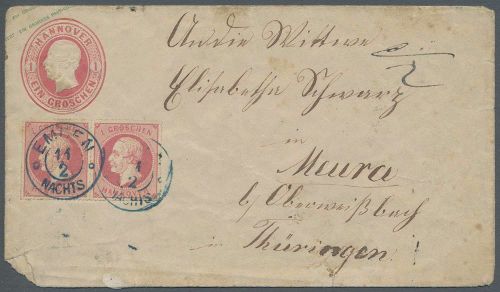 HANNOVER
1 1
EIN GROSCHEN
An die Wittwe
Elisabetha Schwarz
in
Meura
b/ Oberweißbach
in Thüringen !
EMDEN
11
2
NACHTS
1 GROSCHEN
HANNOVER
1
2
NACHTS